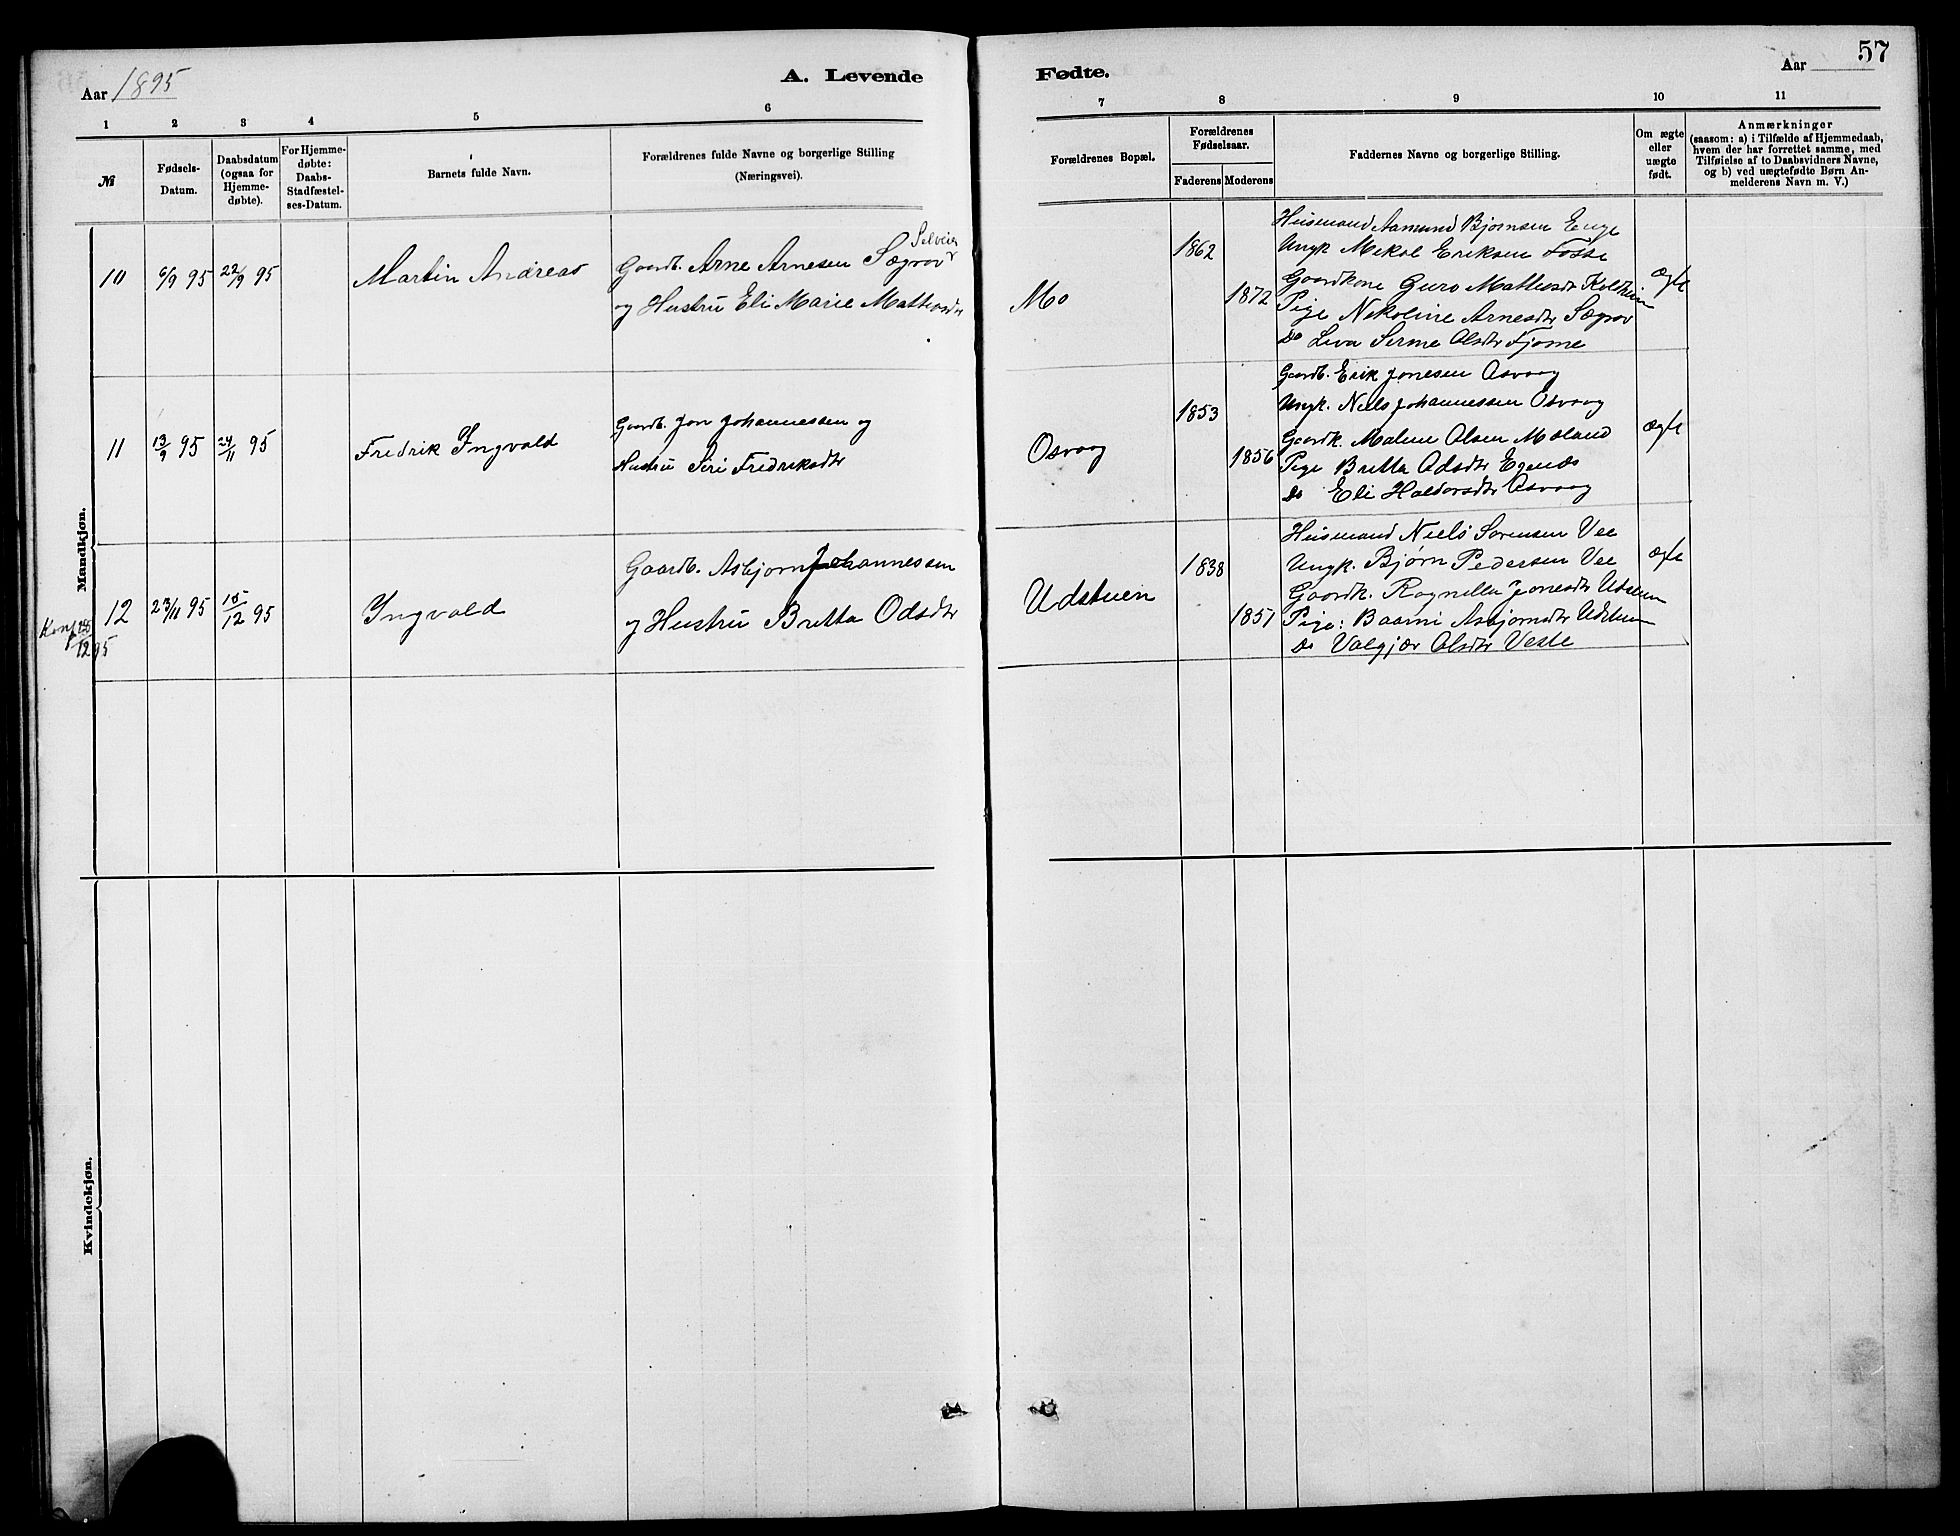 57
Aar 1895
A. Levende
Fødte.
Aar
1 2 3 4 5 6
7 8 9 10 11
№
Fødsels-
Datum.
Daabsdatum
(ogsaa for
Hjemme-
døbte).
For Hjemme-
døbte:
Daabs-
Stadfæstel-
ses-Datum.
Barnets fulde Navn.
Forældrenes fulde Navne og borgerlige Stilling
(Næringsvei).
Forældrenes Bopæl.
Forældrenes
Fødselsaar.
Faderens Moderens
Faddernes Navne og borgerlige Stilling.
Om ægte
eller
uægte
født.
Anmærkninger
(saasom: a) i Tilfælde af Hjemmedaab,
hvem der har forrettet samme, med
Tilføielse af to Daabsvidners Navne,
og b) ved uægtefødte Børn An-
melderens Navn m. V.)
Mandkjøn.
10
6/9 95
22/9 95
Martin Andreas
Selveier
Gaardb. Arne Arnesen Sægrov
og Hustru Eli Marie Mathisdr
Mo
1862
1872
Husmand Aamund Bjørnsen Enge
Ungk Mikal Eriksen Fosse
Gaardkone Guro Mathisdt
Pige Nikoline Arnesdtr Sægrov
Do Olsdtr Fjorne
ægte
11
13/9 95
24/11 95
Fredrik Ingvald
Gaardb. Jon Johannessen og
Hustru Siri Fredriksdtr
Osvaag
1853
1856
Gaardb. Erik Jonesen Osvaag
Ungk. Niels Johannessen Osvaag
Gaardk. Malene Olsen Moland
Pige Britta Odsdtr Egenæs
Do Eli Haldorsdtr Osvaag
ægte
12
23/11 95
15/12 95
Konf
12 95
Ingvald
Gaardb. Asbjørn Johannessen
og Hustru Britta Odsdtr
Udstuen
1838
1851
Husmand Niels Sørensen Vee
Ungk. Bjørn Pedersen Vee
Gaardk. Ragnilla Jonesdtr Udstuen
Pige: Baarni Asbjørnsdtr Udstuen
Do Valgjær Olsdtr Vesle
ægte
Kvindekjøn.